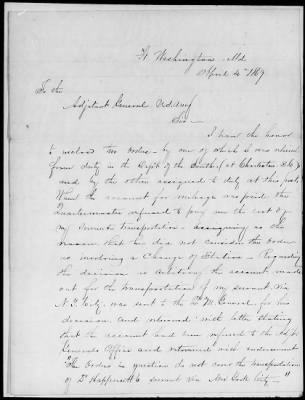 Ft Washington Md
April 4th 1869
To the
Adjutant General U.S. Army
Sir—
I have the honor
to enclose two orders— by one of which I was relieved
from duty in the Dept of the South (at Charleston S.C.)
and by the other assigned to duty at this post.
When the account for mileage was paid the
Quartermaster refused to pay me the cost of
my servants transportation — assigning as the
reason that he does not consider the orders
as involving a Change of Station — Regarding
the decision as arbitrary the account made
out for the transportation of my servant via
N.Y. City, was sent to the Q.M. General for his
decision and returned with letter stating
that the account had been referred to the Adjt
Generals Office and returned with endorsement
"The orders in question do not cover the transportation
of Dr Happersett's servant via New York City — "